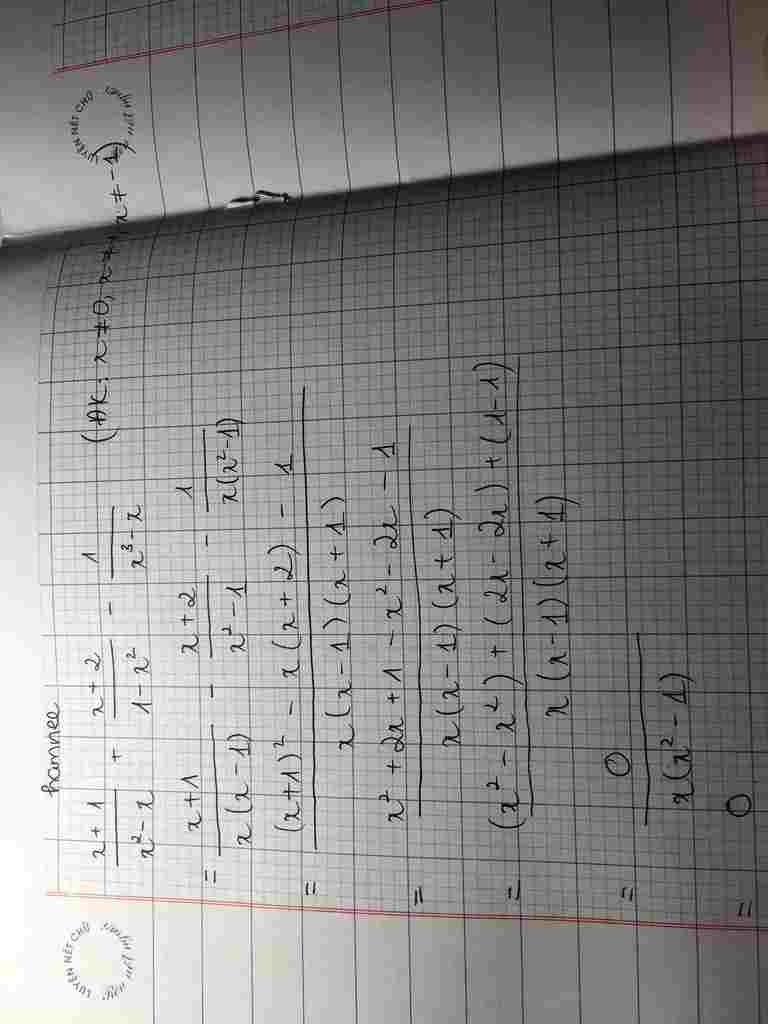 hamnee
x+1/x²-x + x+2/1-x² - 1/x³-x (ĐK: x≠0, x≠1, x≠-1)
= x+1/x(x-1) - x+2/x²-1 - 1/x(x²-1)
= (x+1)² - x(x+2) - 1/x(x-1)(x+1)
= x²+2x+1-x²-2x-1/x(x-1)(x+1)
= (x²-x²)+(2x-2x)+(1-1)/x(x-1)(x+1)
= 0/x(x²-1)
= 0
LUYỆN NÉT CHỮ
LUYỆN NÉT CHỮ